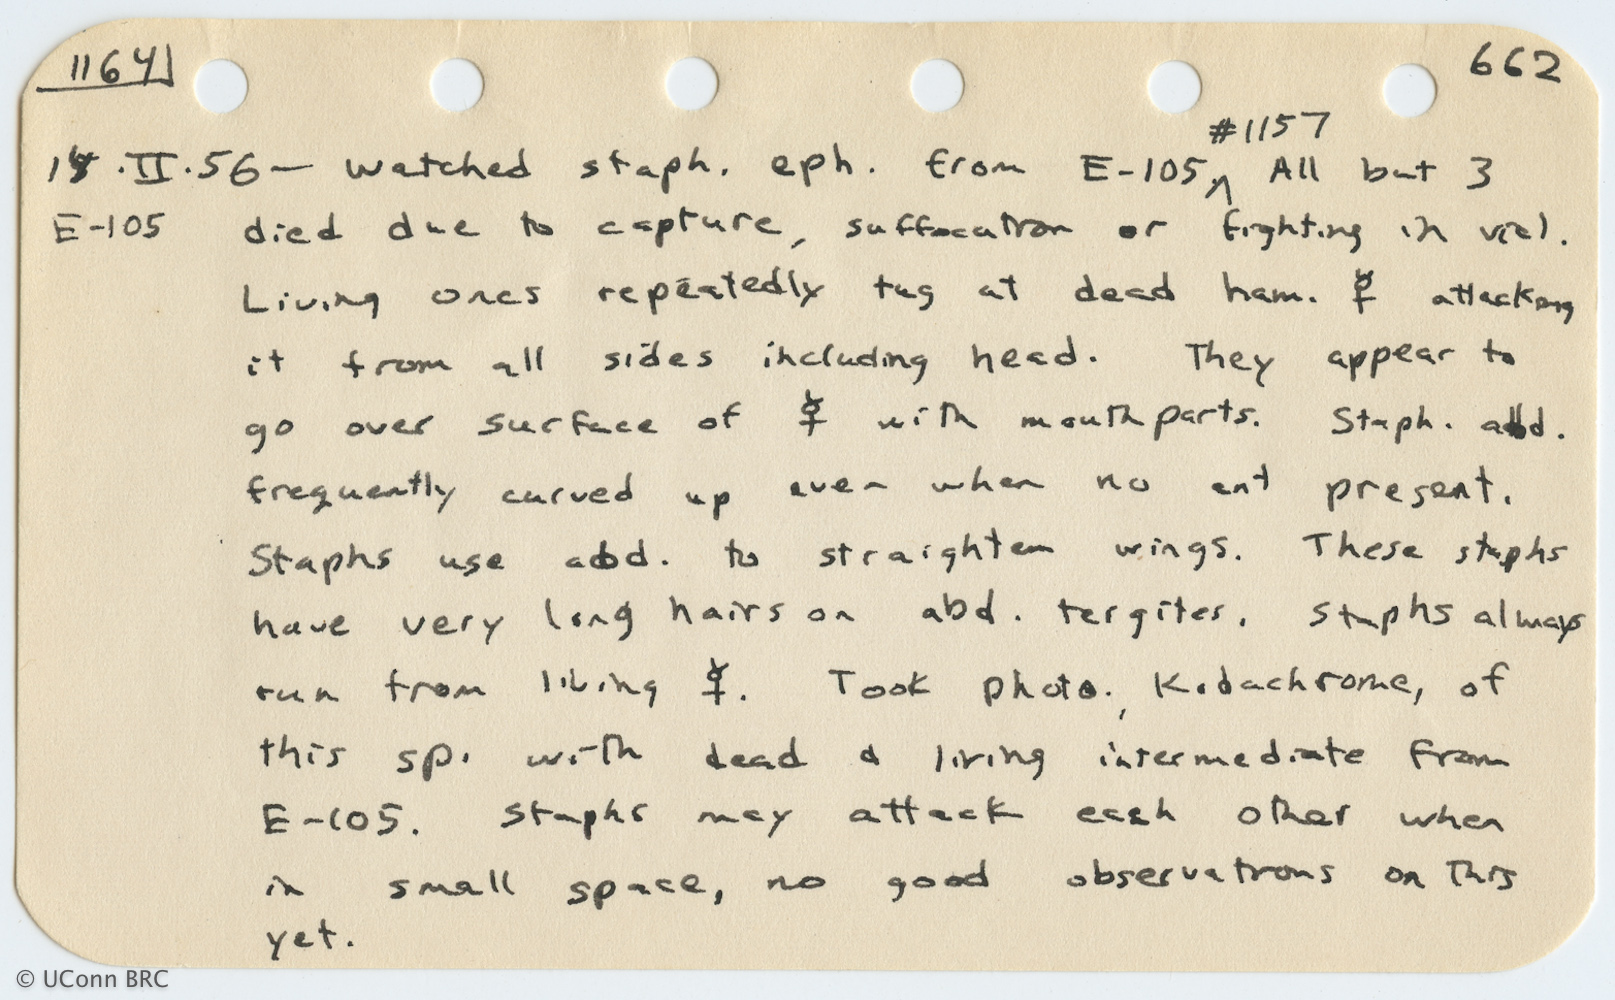 1164
662
#1157
.II.56 — Watched staph. eph. from E-105 All but 3
E-105 died due to capture, suffocation or fighting in vial.
Living ones repeatedly tug at dead ham. ☿ attacking
it from all sides including head. They appear to
go over surface of ☿ with mouthparts. Staph. abd.
frequently curved up even when no ant present.
Staphs use abd. to straighten wings. These staphs
have very long hairs on abd. tergites. Staphs always
run from living ☿. Took photo., Kodachrome, of
this sp. with dead & living intermediate from
E-105. Staphs may attack each other when
in small space, no good observations on this
yet.
© UConn BRC